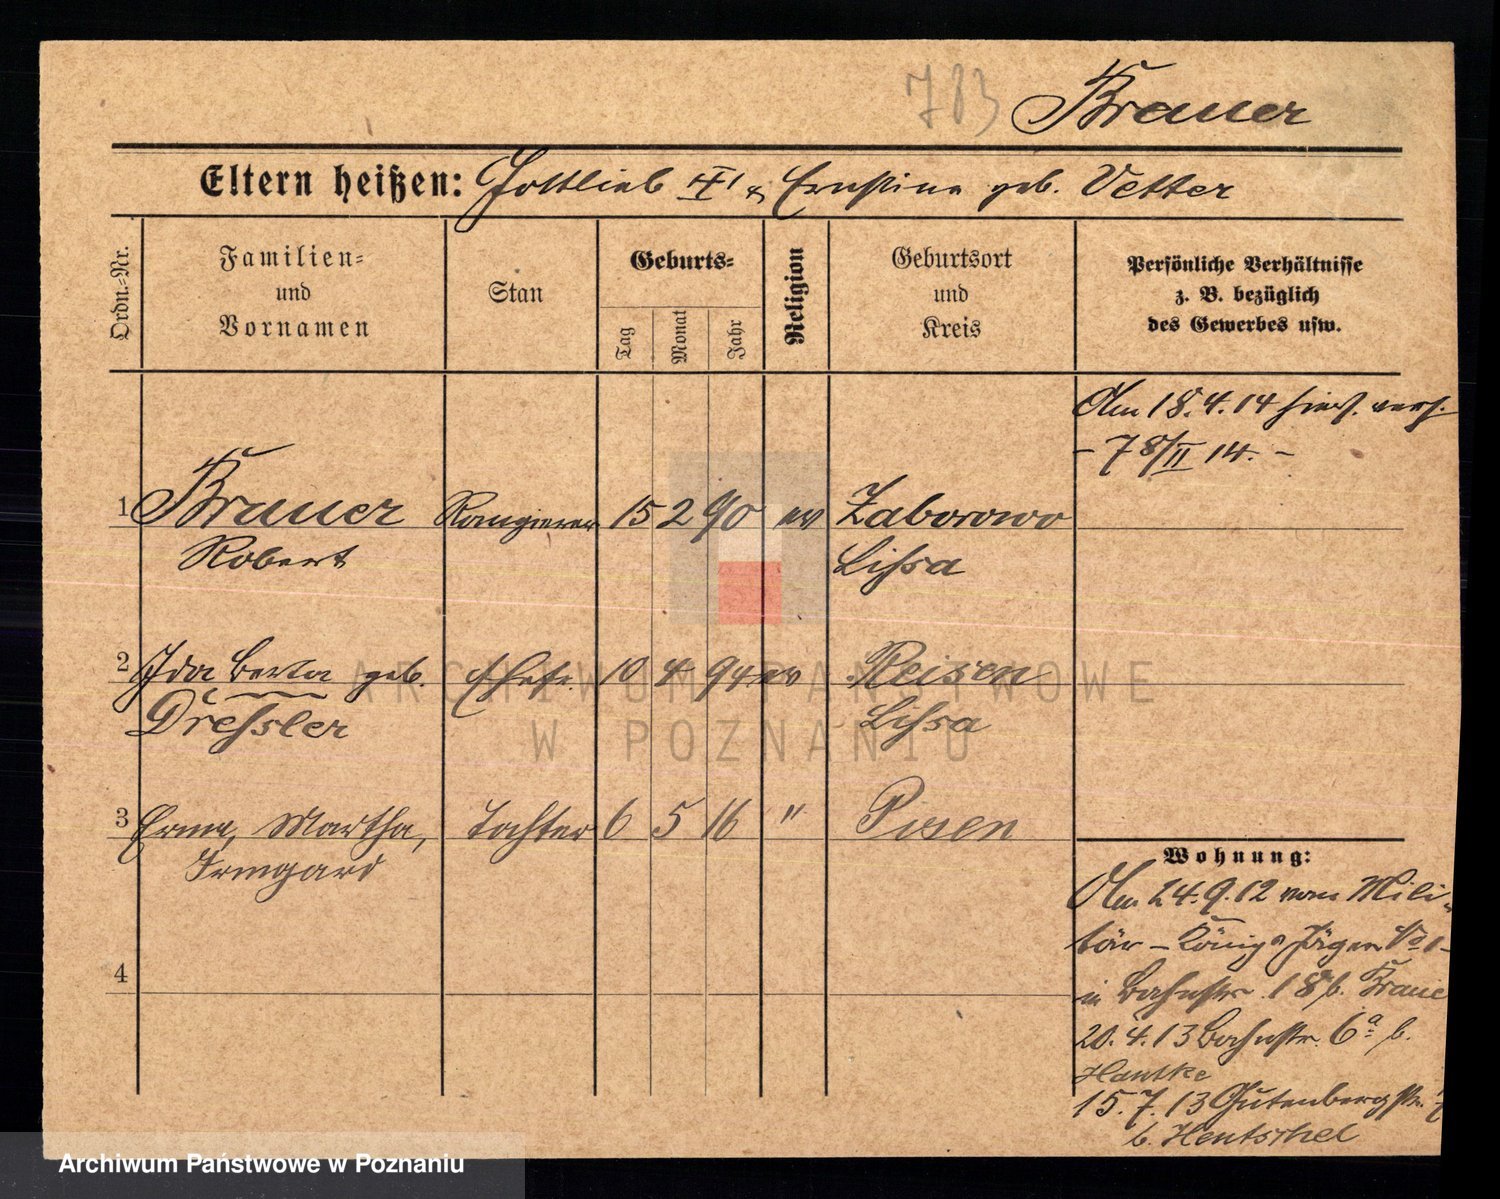 783 Brauer
Eltern heißen: Gottlieb & Ernstine geb. Vetter
Ordn.-Nr.
Familien-
und
Vornamen
Stan
Geburts-
Tag
Monat
Jahr
Religion
Geburtsort
und
Kreis
Persönliche Verhältnisse
z. B. bezüglich
des Gewerbes usw.
Am 18.4.14 hier verh.
- 78/II 14. -
1 Brauer Rangierer 15 2 90 ev Zaborowo
Robert Lissa
2 Ida Berta geb. Ehefr. 10 4 94 ev Reisen
Dressler Lissa
3 Erna, Martha, Tochter 6 5 16 " Posen
Irmgard
4
Wohnung:
Am 24.9.12 vom Mili-
tär - Königs Jäger No 1 -
in Bahnstr. 18 b.
20.4.13 Bahnstr. 6a b.
Hantke
15.7.13 Gutenbergstr. 7
b. Hentschel
ARCHIWUM PAŃSTWOWE
W POZNANIU
Archiwum Państwowe w Poznaniu